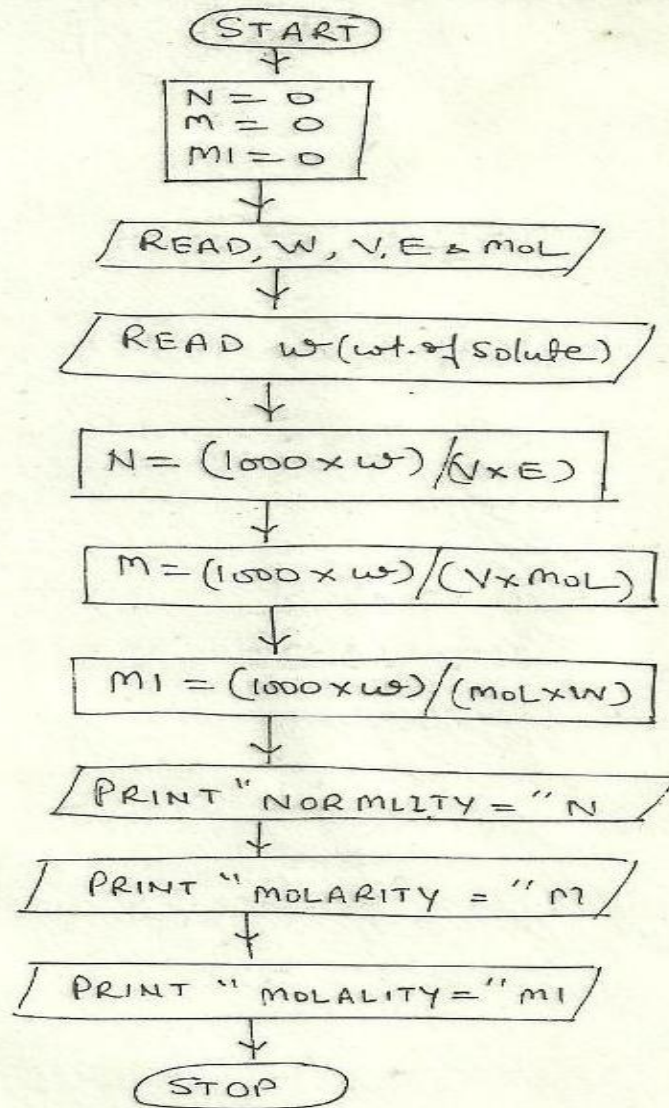 START
N = 0
M = 0
M1 = 0
READ, W, V, E & MOL
READ w (wt. of solute)
N = (1000 × w) / (V × E)
M = (1000 × w) / (V × MOL)
M1 = (1000 × w) / (MOL × W)
PRINT "NORMLITY = " N
PRINT "MOLARITY = " M
PRINT "MOLALITY = " M1
STOP